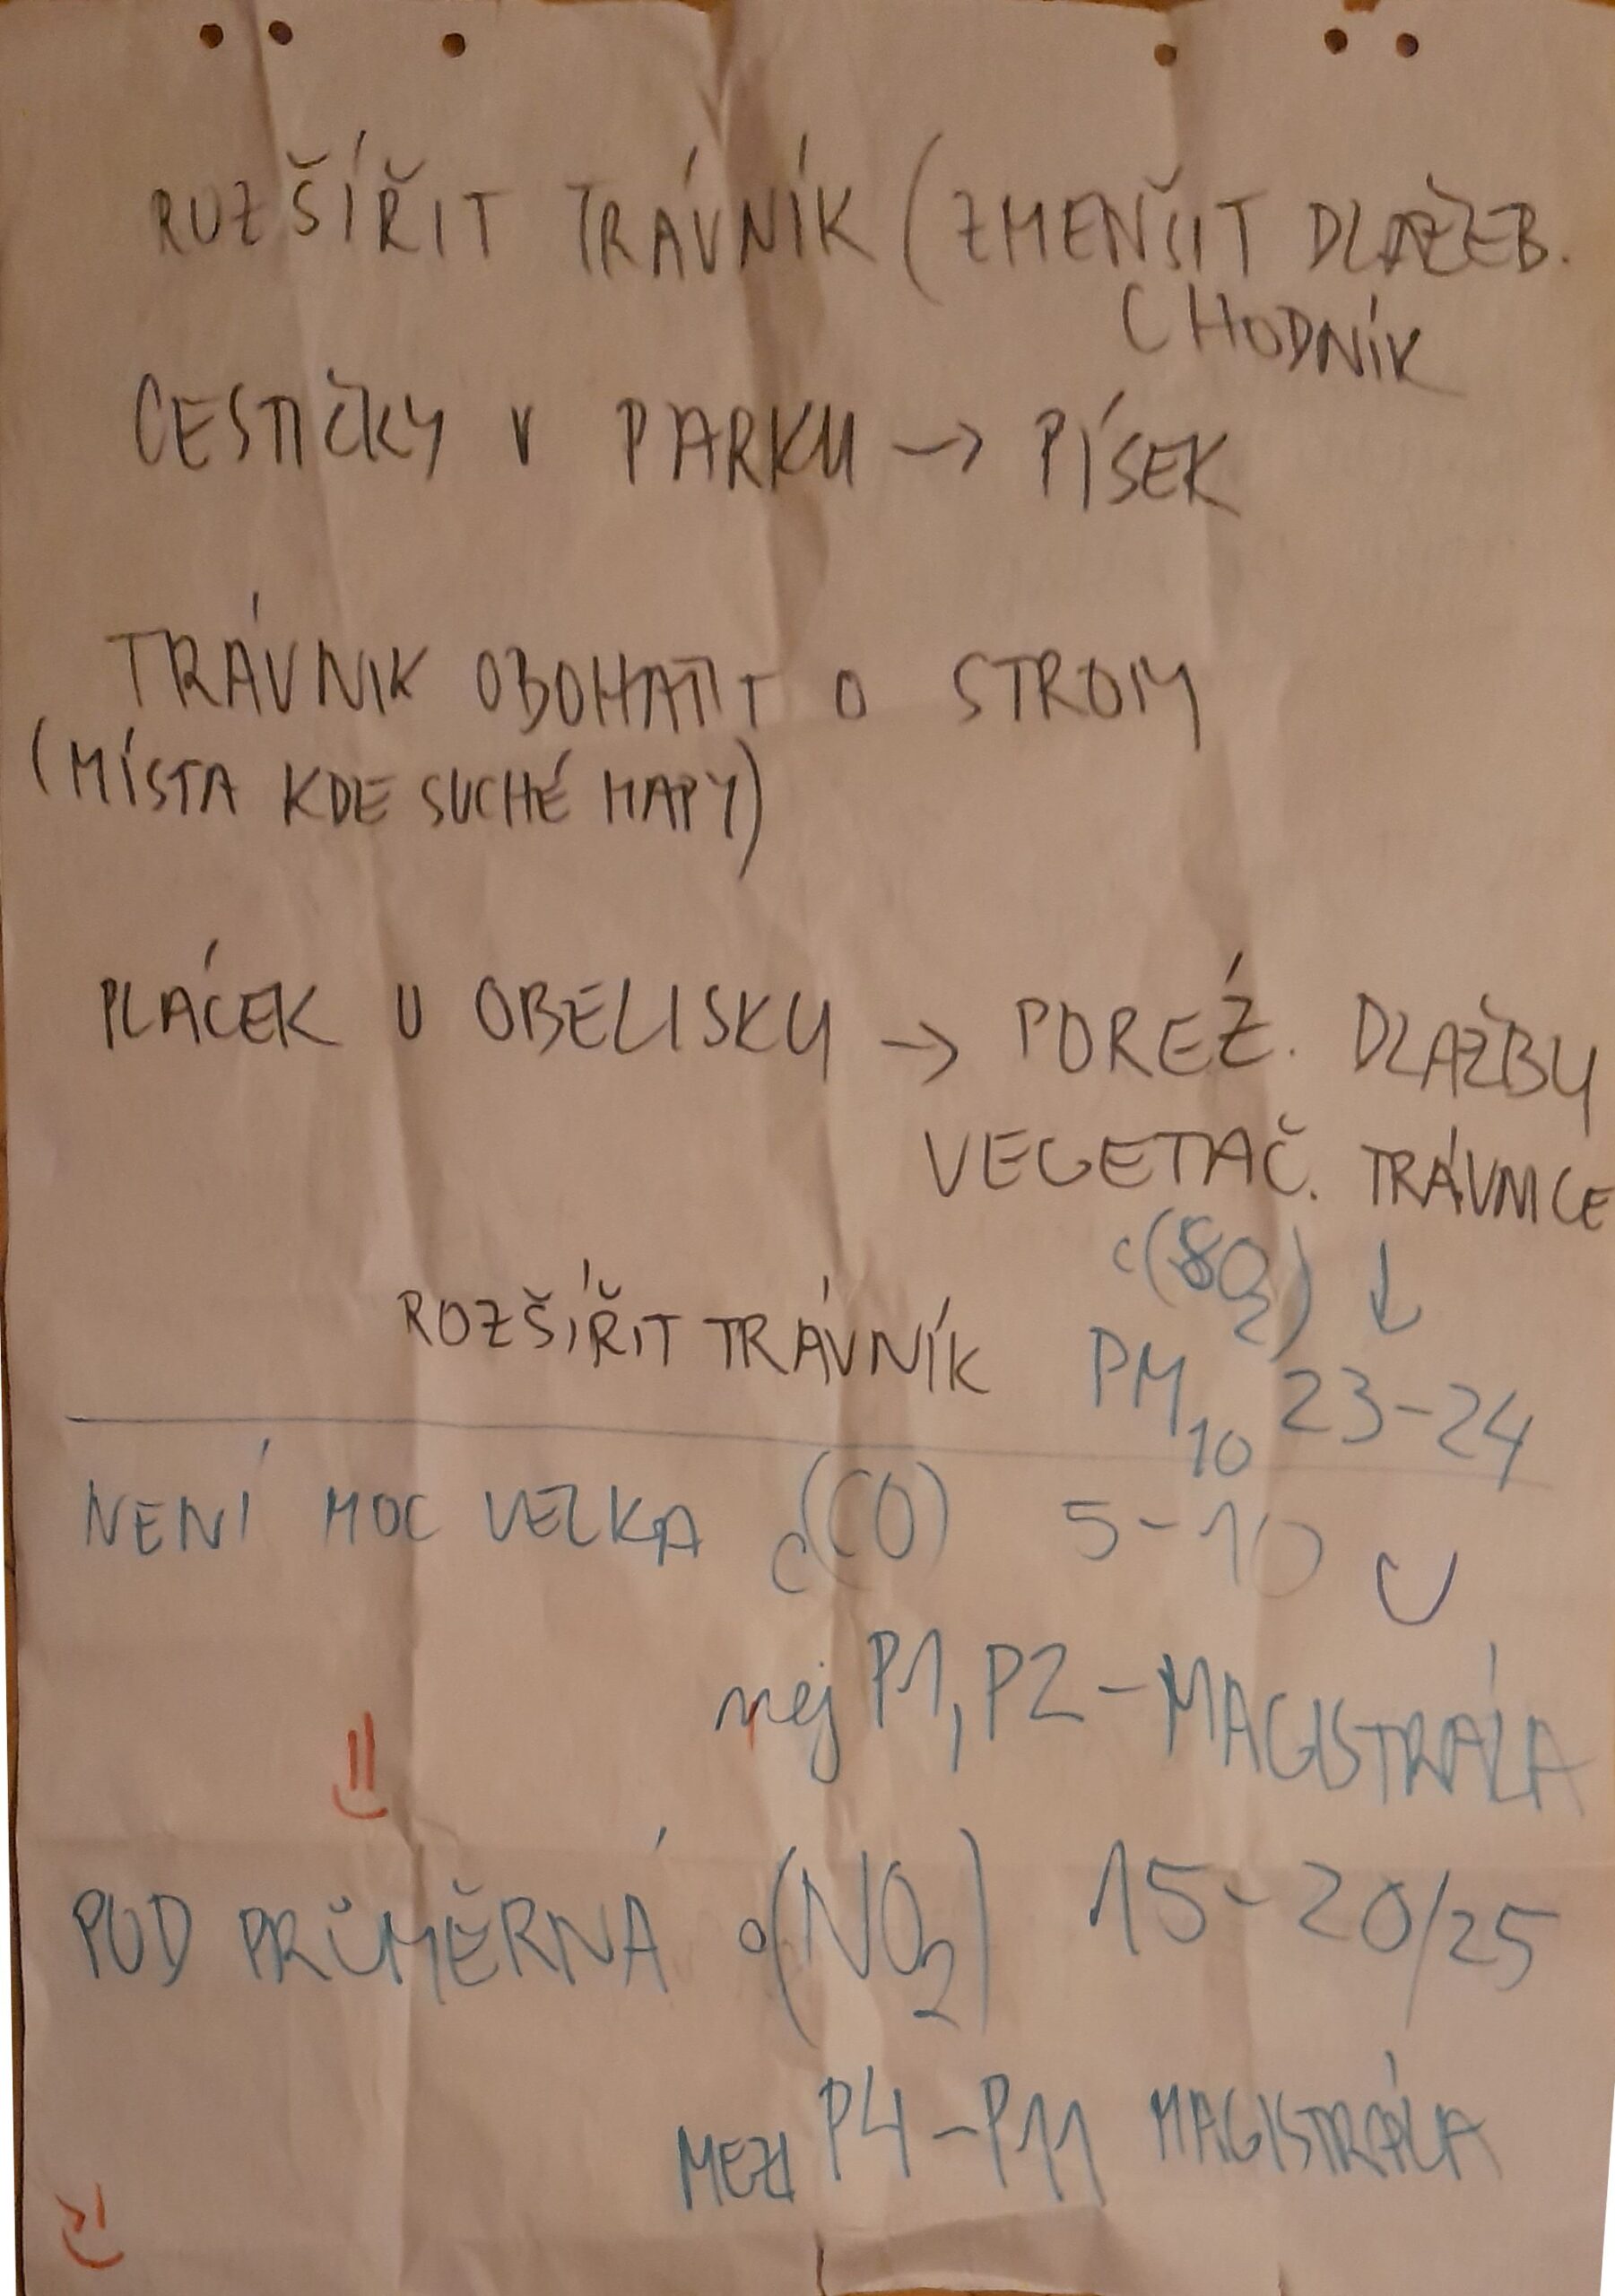 ROZŠÍŘIT TRÁVNÍK (ZMENŠIT DLAŽEB.
CHODNÍK
CESTIČKY V PARKU → PÍSEK
TRÁVNIK OBOHATIT O STROMY
(MÍSTA KDE SUCHÉ MAPY)
PLÁCEK U OBELISKU → POREŹ. DLAŽBY
VEGETAČ. TRÁVNICE
c(SO2) ↓
ROZŠÍŘIT TRÁVNÍK PM10 23-24
NENÍ MOC VELKA c(CO) 5-10
nej P1, P2 - MAGISTRÁLA
POD PRŮMĚRNÁ c(NO2) 15-20/25
MEZI P4-P11 MAGISTRÁLA